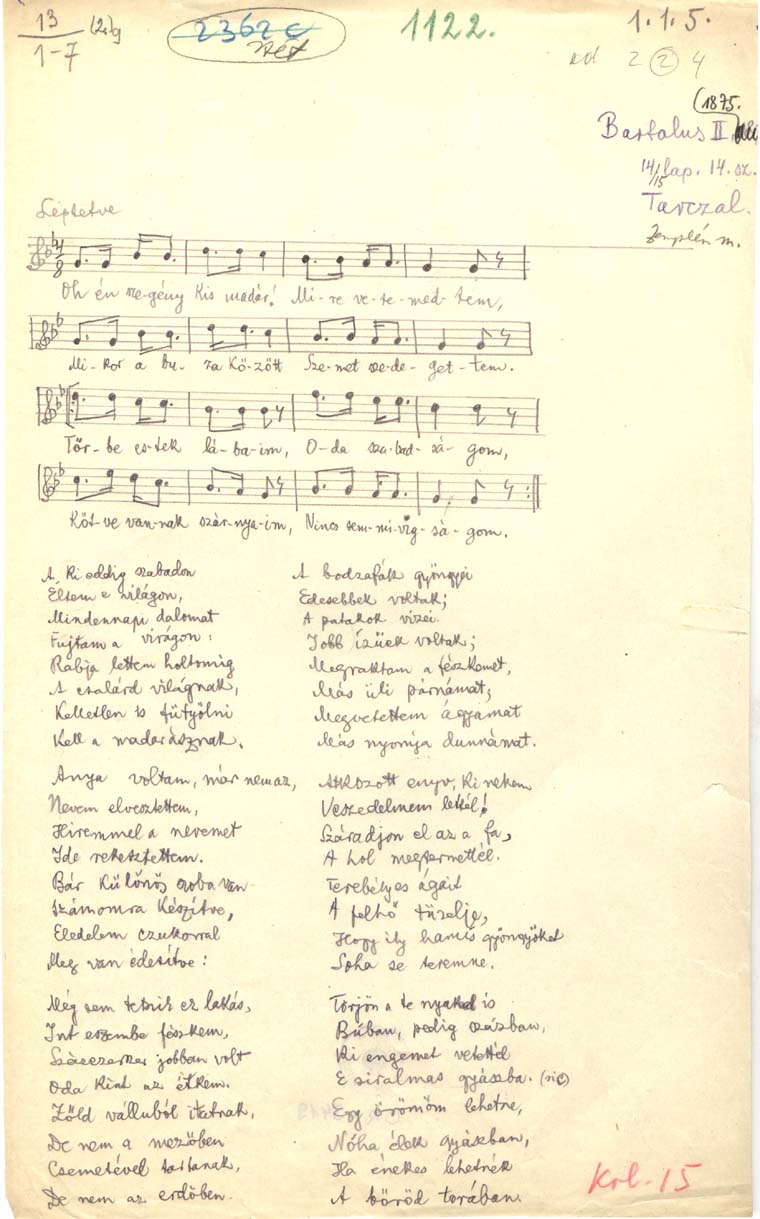 13
1-7
(2.)g
2362c
1122.
1. 1. 5.
2 2 4
(1875.
Bartalus II.
14/15 lap. 14. sz.
Tarczal.
Zemplén m.
Léptetve
4/8
Oh én sze-gény kis madár! Mi-re ve-te-med-tem,
Mi-kor a bu-za kö-zött Sze-met sze-de-get-tem.
Tőr-be es-tek lá-ba-im, O-da sza-bad-sá-gom,
Köt-ve van-nak szár-nya-im, Nincs sem-mi vig-sá-gom.
A ki eddig szabadon
Éltem e világon,
Mindennapi dalomat
Fujtam a virágon:
Rabja lettem holtomig
A csalárd világnak,
Kelletlen is fütyölni
Kell a madarásznak.
Anya voltam, már nem az,
Nevem elvesztettem,
Hiremmel a nevemet
Ide rekesztettem.
Bár különös szoba van
Számomra készítve,
Eledelem czukorral
Meg van édesitve:
Még sem tetszik ez lakás,
Int eszembe fészkem,
Százezerszer jobban volt
Oda kint az étkem.
Zöld válluból itatnak,
De nem a mezőben
Csemetével tartanak,
De nem az erdőben.
A bodzafák gyöngyei
Édesebbek voltak;
A patakok vizei
Jobb ízüek voltak;
Megraktam a fészkemet,
Más üli párnámat;
Megvetettem ágyamat
Más nyomja dunnámat.
Átkozott enyv, ki nekem
Veszedelmem lettél!
Száradjon el az a fa,
A hol megtermettél.
Terebélyes ágait
A felhő tüzelje,
Hogy ily hamis gyöngyöket
Soha se teremne.
Törjön a te nyakad is
Búban, pedig százban,
Ki engemet vetettél
E siralmas gyászba. (sic)
Egy örömöm lehetne,
Nóha élek gyászban,
Ha énekes lehetnék
A böröd torában.
Krl. 15